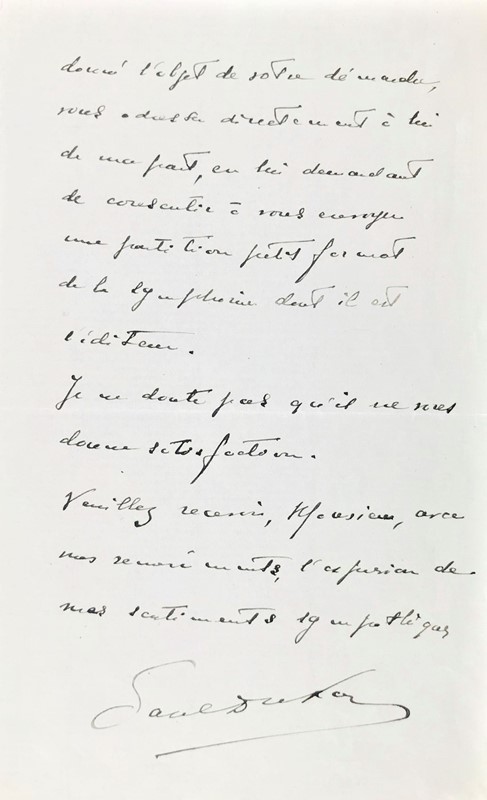 donné l'objet de votre demande,
vous adresser directement à lui
de ma part, en lui demandant
de consentir à vous envoyer
une partition petit format
de la symphonie dont il est
l'éditeur.
Je ne doute pas qu'il ne vous
donne satisfaction.
Veuillez recevoir, Monsieur, avec
mes remerciements, l'expression de
mes sentiments sympathiques
Paul Dukas